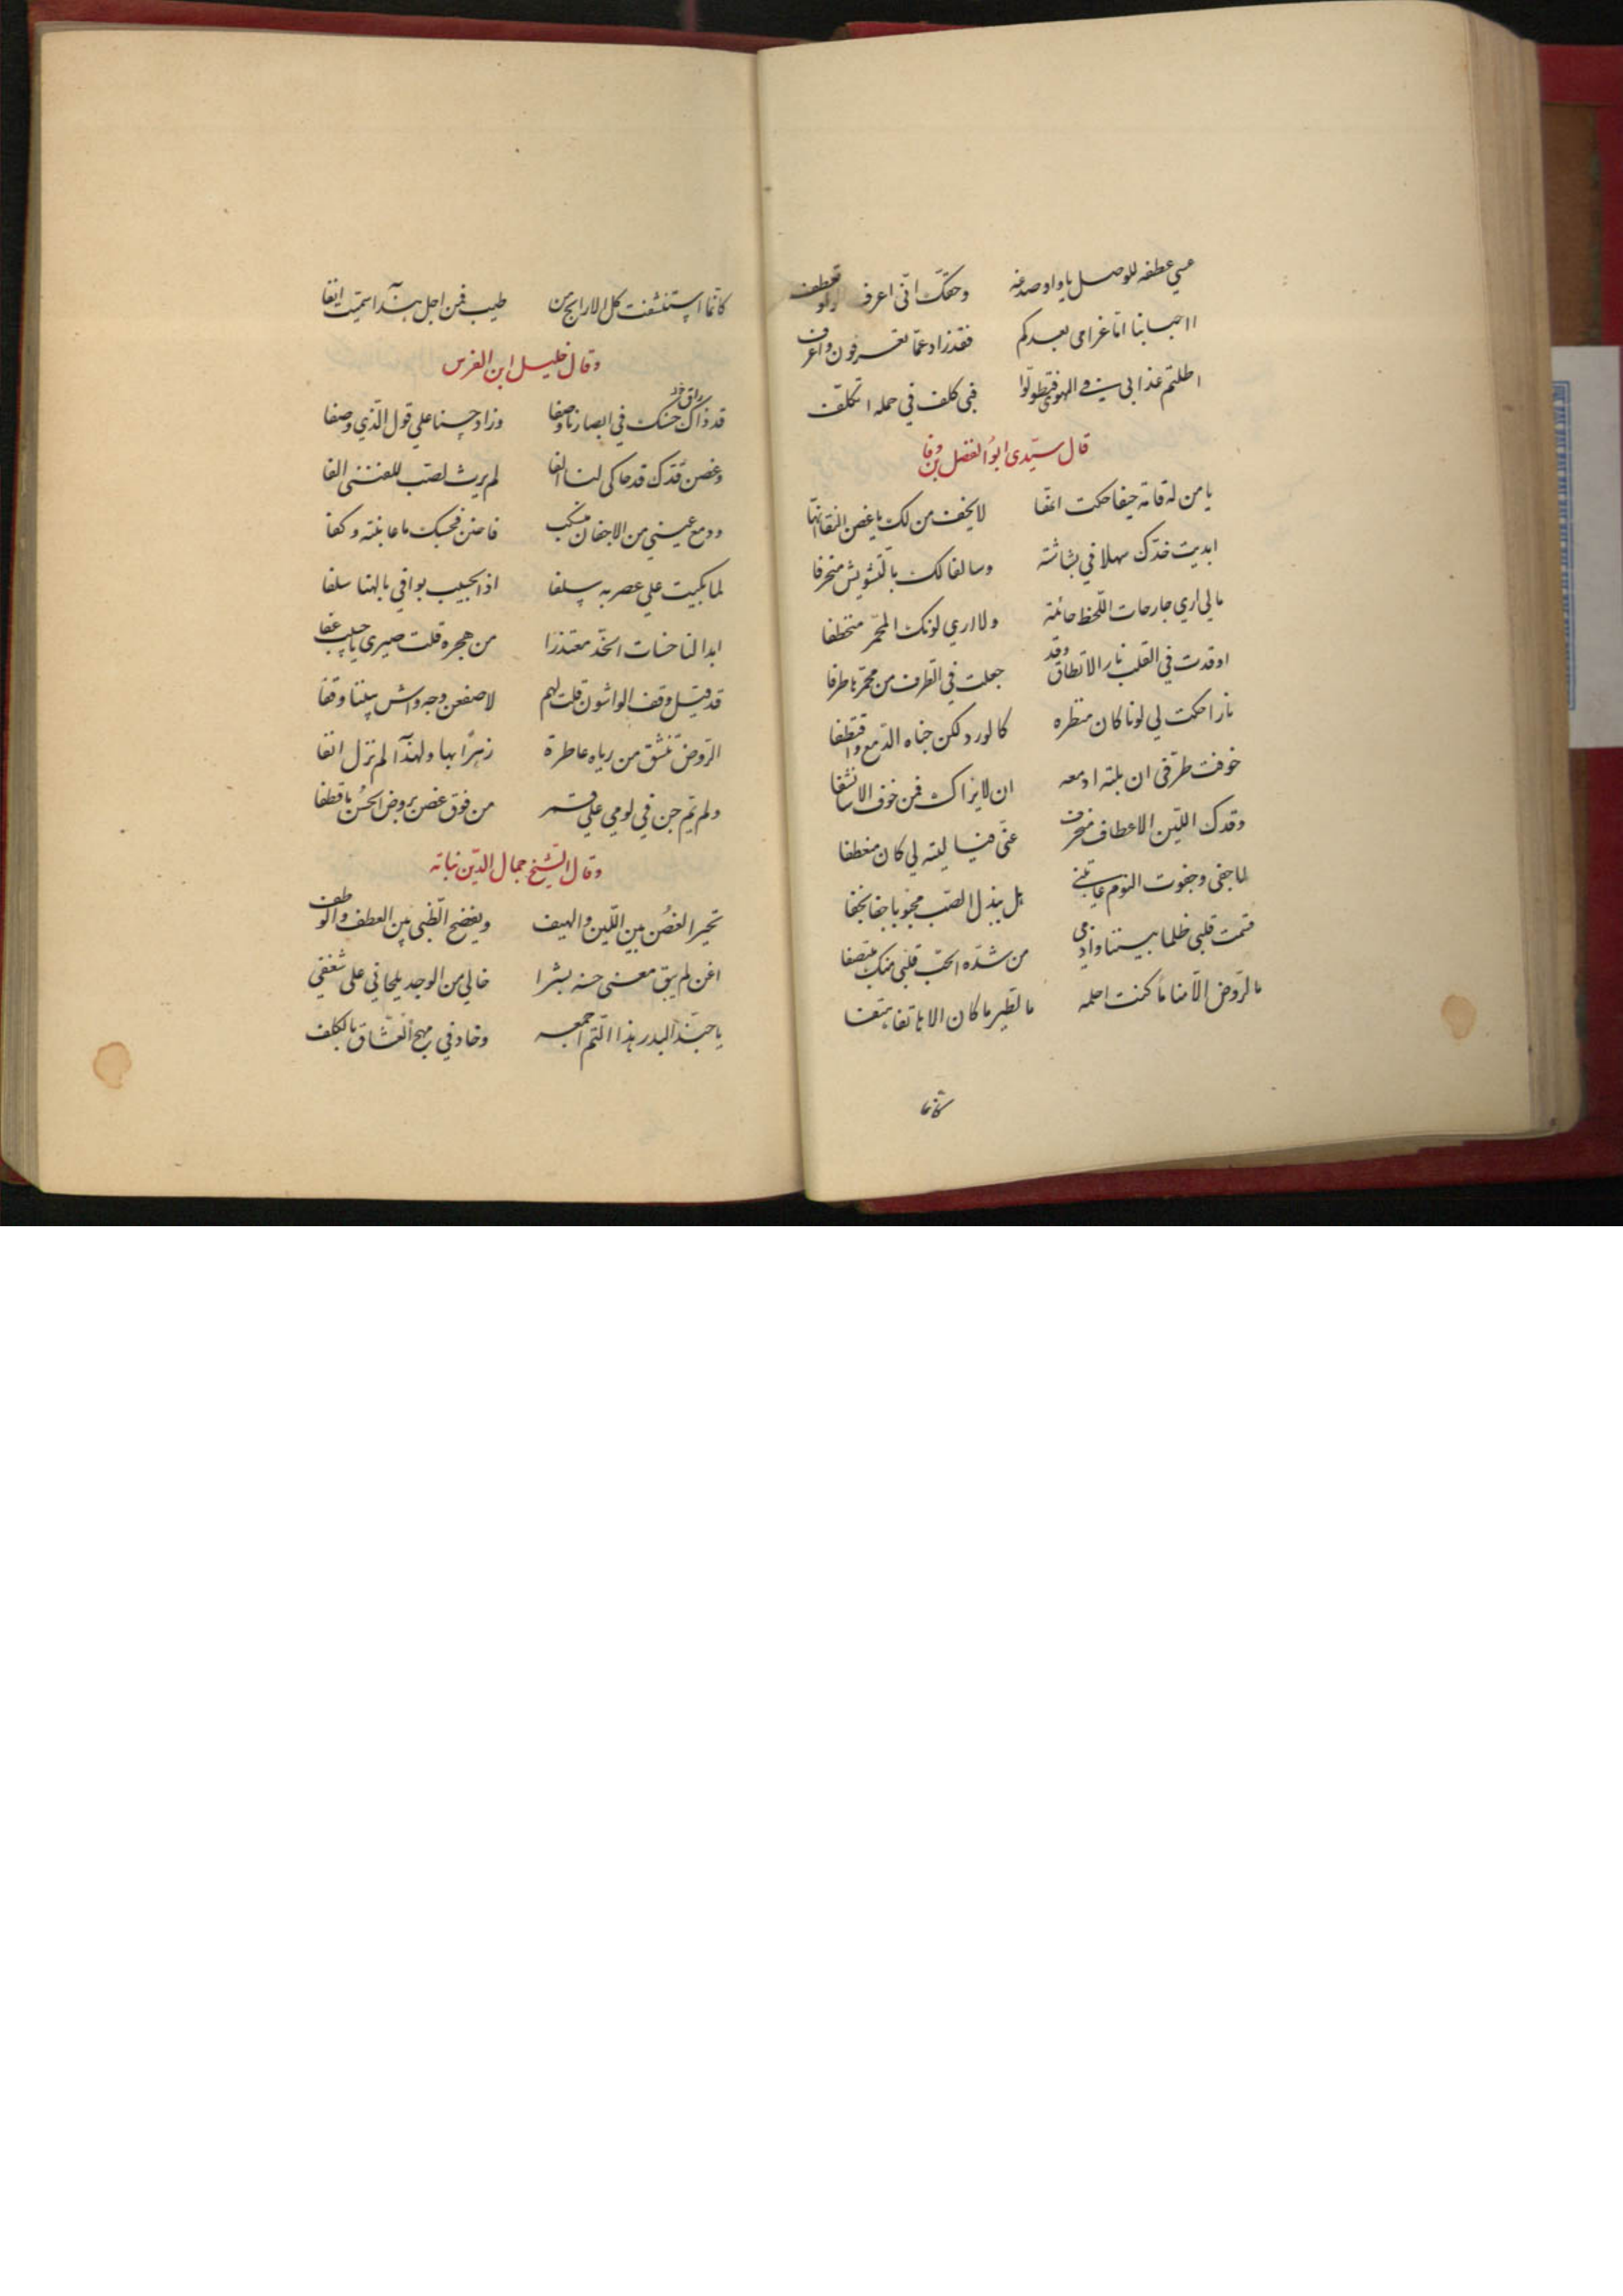 عسي عطفه للوصل ياواو صدغه وحقك انّى اعرف الواو تعطف
ااحبابنا امّا غرامى بعدكم فقد زاد عمّا تعرفون واعرف
اطلتم عذابى في الهوى فتطولوا فبى كلف في حمله اتكلّف
قال سيّدى ابو الفضل بن وفا
يا من له قامة هيفا حكت الفا لا يخف من لك يا غصن النقا
ابديت خدّك سهلا في بشاشته وسالفا لك بالتشويش منحرفا
مالي اري جارحات اللّحظ حائمة ولا اري لونك المحمّر منخطفا
اوقدت في القلب نارالا تطاق وقد جعلت في الطرف من محمّرها طرفا
نارا حكت لي لونا كان منظره كالورد لكن جناه الدّمع واقتطفا
خوفت طرفى ان بلته ادمعه ان لا يراك فمن خوف الاسا نشفا
وقدك الليّن الاعطاف منحرف عنّى فيا ليته لي كان منعطفا
لما جفى وجفوت النوم عاتبنى هل يبذل الصّب محبوبا جفا بجفا
قسمت قلبى ظلما بيننا واذى من شدّة الحبّ قلبى منك منتصفا
ما لروّض الّا منا ما كنت احلمه ما لطير ما كان الا هاتفا هتفا
كانما
كانما استنشقت كل الارايج من طيب فمن اجل هذا سميت انفا
وقال خليل ابن الغرس
قد ذاك حسنك في ابصارنا وصفا وزاد حسنا علي قول الّذي وصفا
راق
وغصن قدّك قد حاكى لنا الفا لم يرث لصب للعنى الفا
ودمع عينى من الاجفان منسكب فاضن فحسبك ما عاينته وكفا
لما بكيت علي عصر به سلفا اذا الحبيب يوافي بالهنا سلفا
ابدا لنا حسنات الخدّ معتذرا من هجره قلت صبرى يا حبيب عفا
قد قيل وقف الواشون قلت لهم لا صفعن وجه واش بيننا وقفا
الرّوض تنشق من رياه عاطرة زهرًا بها ولهذا لم تزل انفا
ولم يتم جن في لومي علي قمر من فوق غصن بروض الحسن ما قطفا
وقال الشّيخ جمال الدّين نباته
تحير الغصُن بين اللّين والهيف ويفضح الظّبى بين العطف والوطف
اغن لم يبق معنى حسنه بشرا خالي من الوجد يلحاني على شغفي
يا حبّذا البدر هذا التّم اجمعه وخاد في مهج العشّاق بالكلف